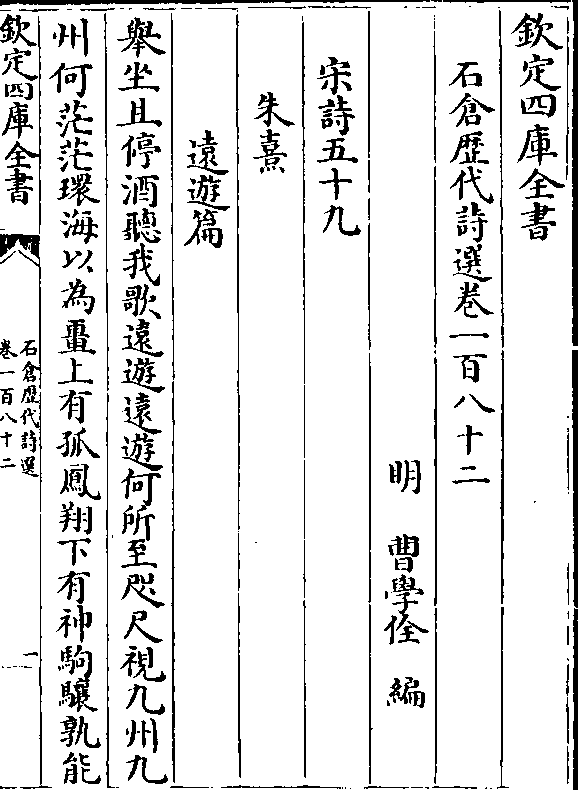 欽定四庫全書
石倉歴代詩選卷一百八十二
明　曹學佺　編
宋詩五十九
朱熹
遠遊篇
舉坐且停酒聽我歌遠遊遠遊何所至咫尺視九州九
州何茫茫環海以為畺上有孤鳳翔下有神駒驤孰能
欽定四庫全書
石倉歴代詩選
卷一百八十二
一